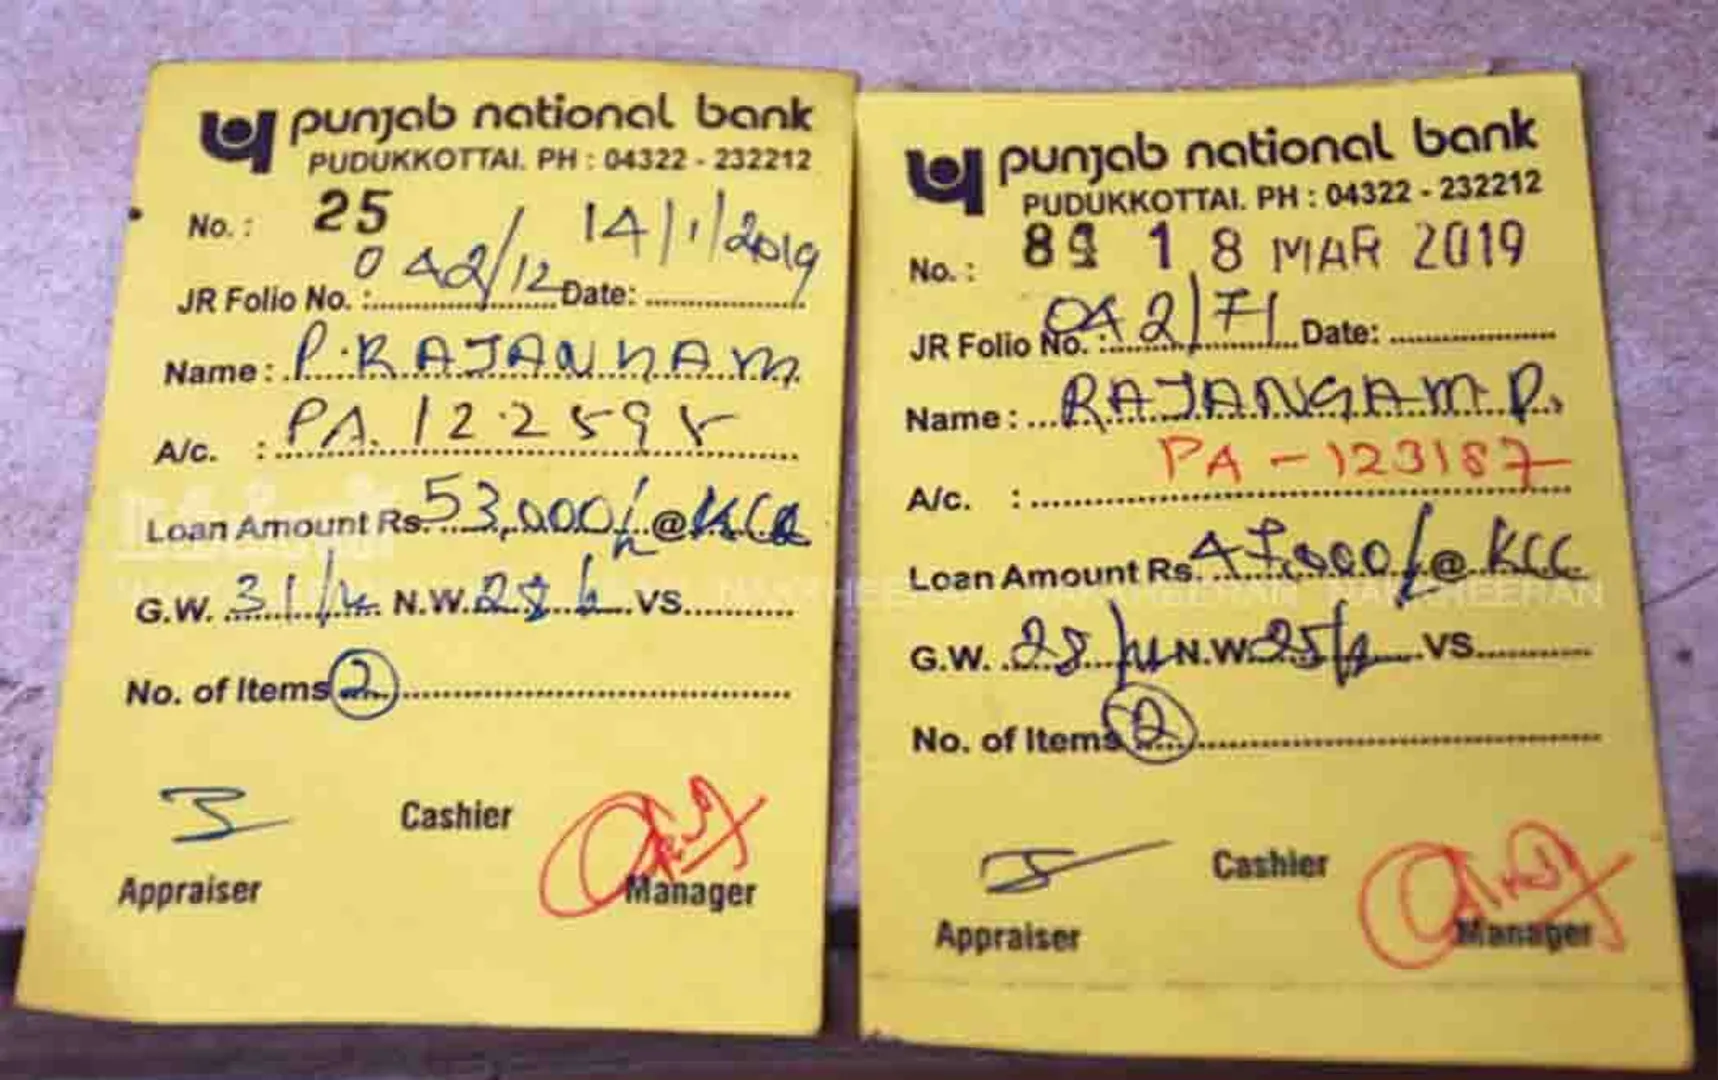 punjab national bank
PUDUKKOTTAI. PH : 04322 - 232212
No. : 25
14/1/2019
JR Folio No. : 042/12 Date:
Name : P. RAJANGAM
A/c. : PA. 122595
Loan Amount Rs. 53,000/- @ KCC
G.W. 31 N.W. 28 VS
No. of Items 2
Cashier
Appraiser Manager
punjab national bank
PUDUKKOTTAI. PH : 04322 - 232212
No. : 89 18 MAR 2019
JR Folio No. : 042/71 Date:
Name : RAJANGAM. P.
PA - 123187
A/c. :
Loan Amount Rs. 47,000/- @ KCC
G.W. 28 N.W. 25 VS
No. of Items 2
Cashier
Appraiser Manager
நக்கீரன்